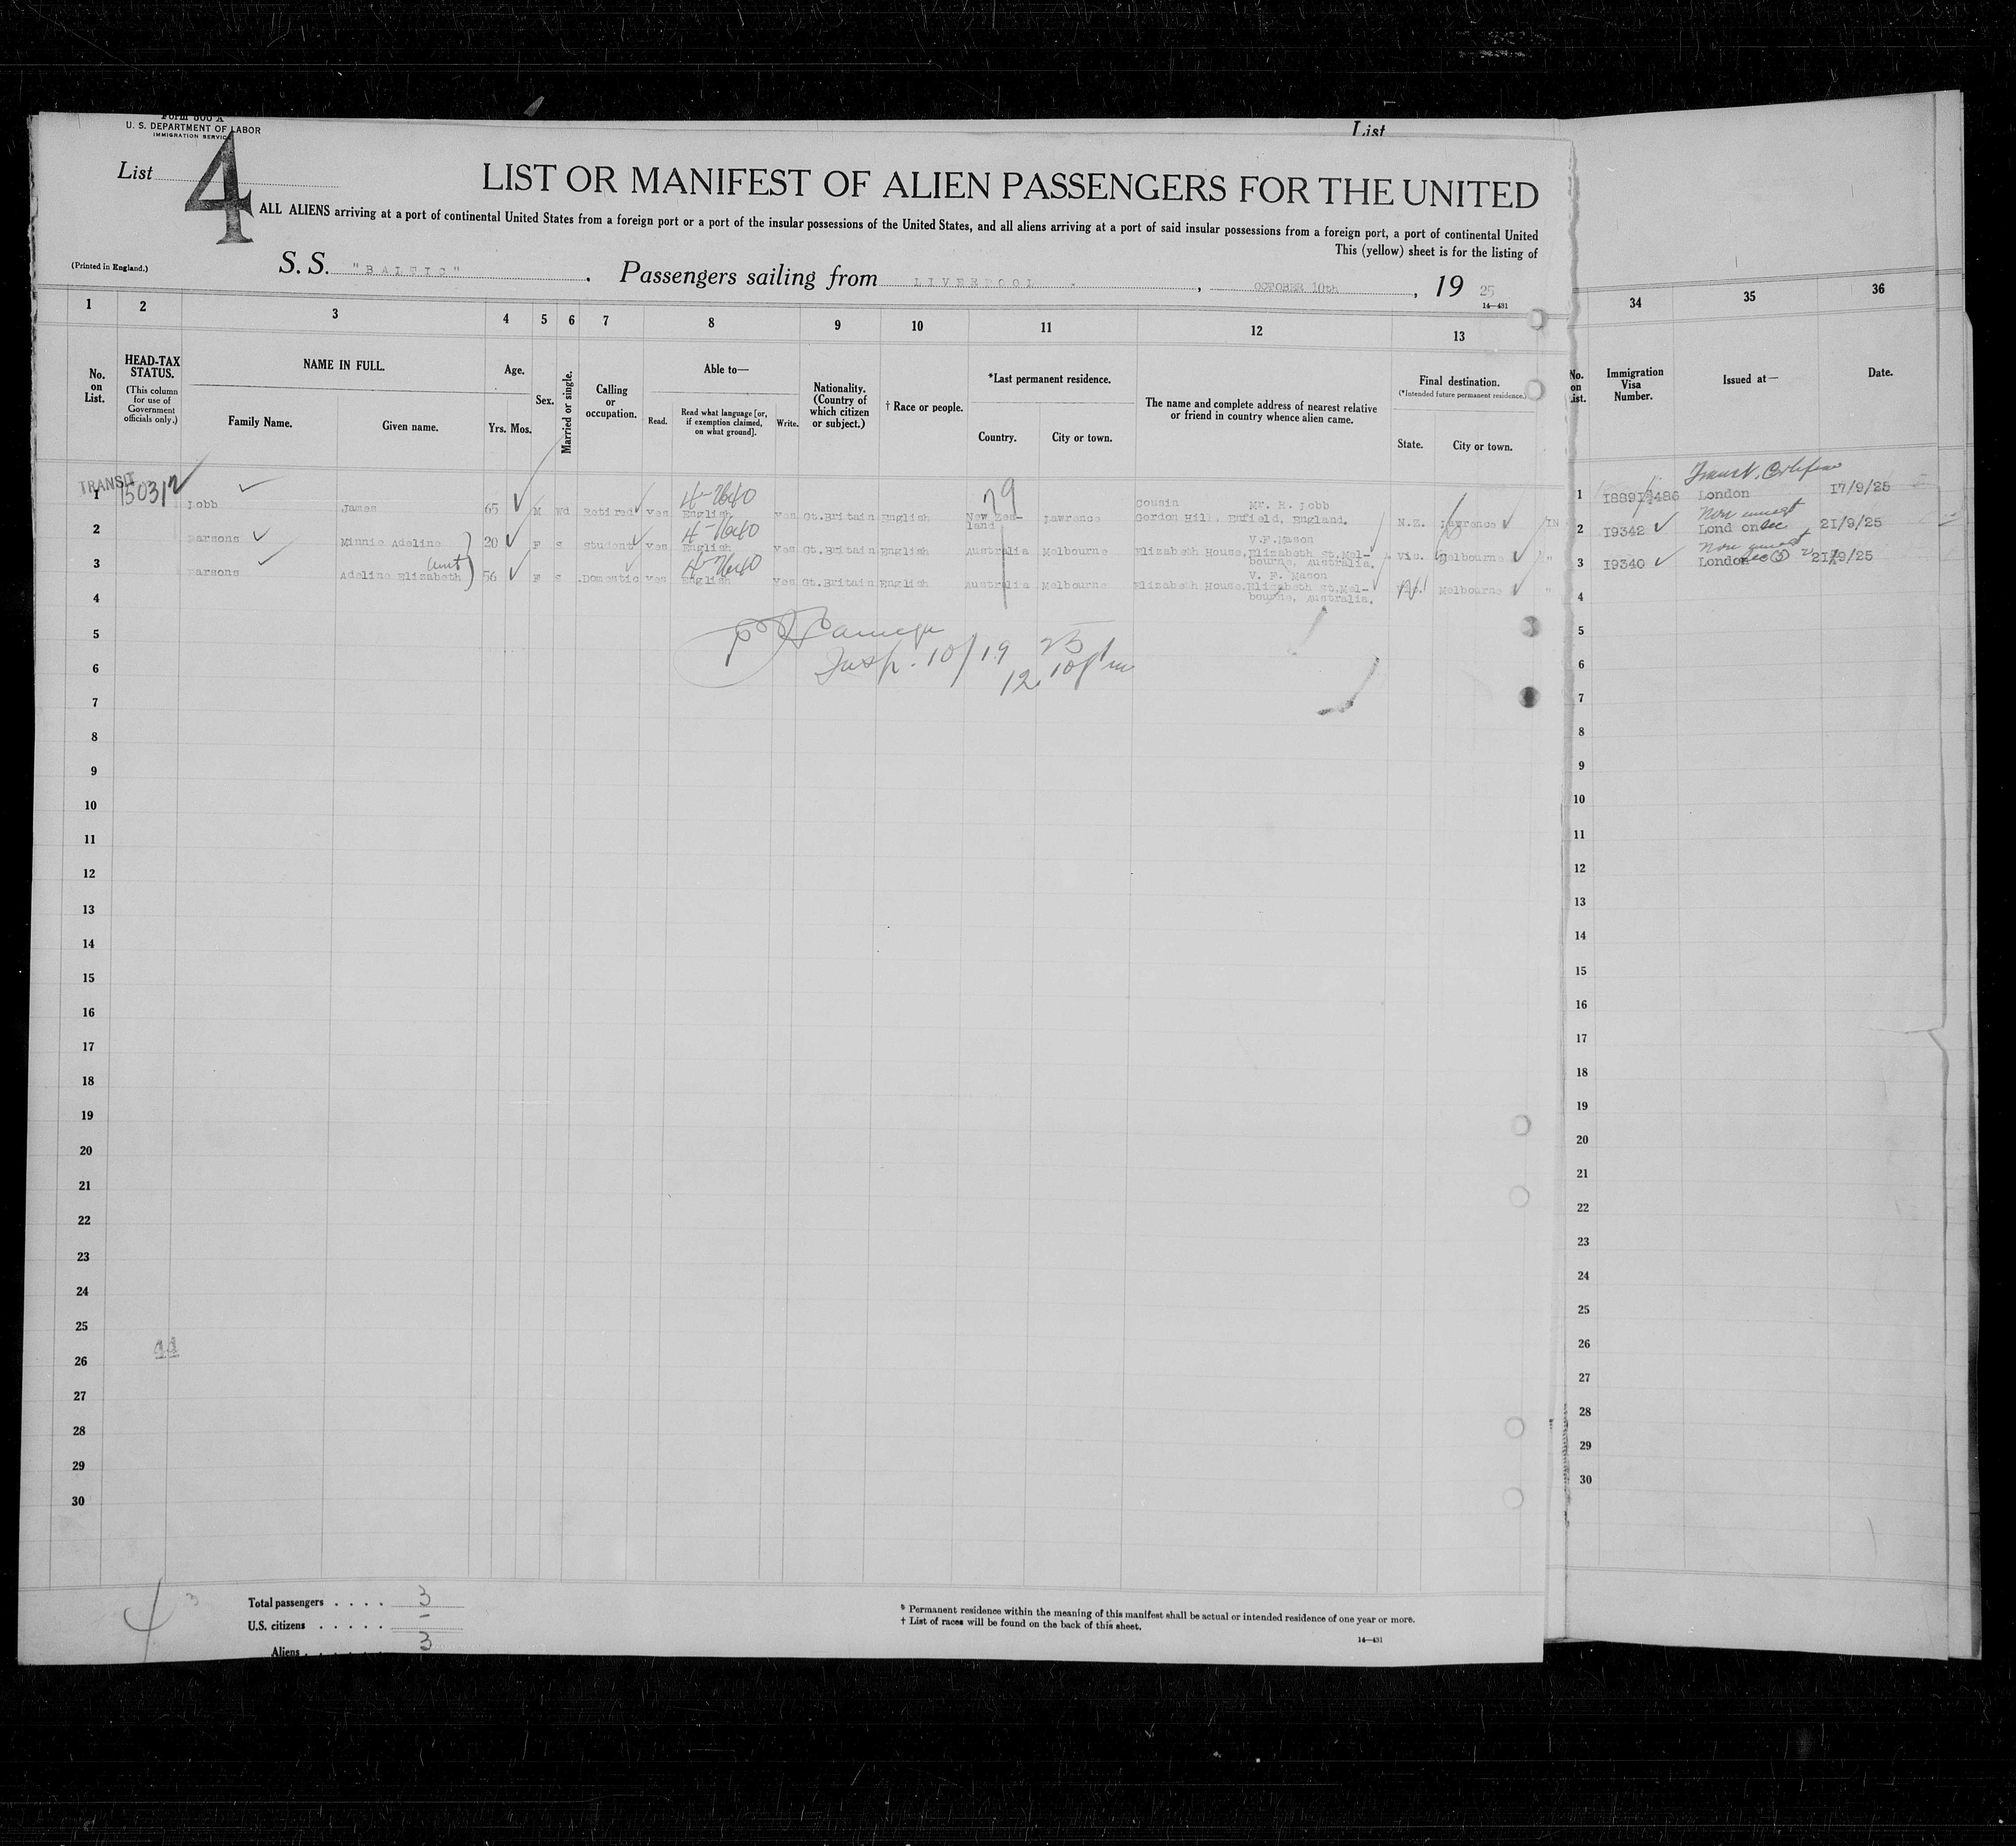 Form 500 A
U. S. DEPARTMENT OF LABOR
IMMIGRATION SERVICE
List
List 4
LIST OR MANIFEST OF ALIEN PASSENGERS FOR THE UNITED
ALL ALIENS arriving at a port of continental United States from a foreign port or a port of the insular possessions of the United States, and all aliens arriving at a port of said insular possessions from a foreign port, a port of continental United
This (yellow) sheet is for the listing of
(Printed in England.)
S. S. "BALTIC". Passengers sailing from LIVERPOOL, OCTOBER 10th, 19 25
14—431
1 2 3 4 5 6 7 8 9 10 11 12 13 34 35 36
No. on List.
HEAD-TAX STATUS.
(This column for use of Government officials only.)
NAME IN FULL.
Family Name. Given name.
Age.
Yrs. Mos.
Sex.
Married or single.
Calling or occupation.
Able to—
Read. Read what language [or, if exemption claimed, on what ground]. Write.
Nationality. (Country of which citizen or subject.)
† Race or people.
*Last permanent residence.
Country. City or town.
The name and complete address of nearest relative or friend in country whence alien came.
Final destination.
(*Intended future permanent residence.)
State. City or town.
No. on List.
Immigration Visa Number.
Issued at—
Date.
TRANSIT
1 Jobb James 65 M Wd Retired Yes English Yes Gt.Britain English New Zea-land Lawrence Cousin Mr. R. Jobb Gordon Hill, Enfield, England. N.Z. Lawrence
2 Parsons Minnie Adeline 20 F S Student Yes English Yes Gt.Britain English Australia Melbourne V.F.Mason Elizabeth House,Elizabeth St.Mel-bourne, Australia. Vic. Melbourne
3 Parsons Adeline Elizabeth Aunt 56 F S Domestic Yes English Yes Gt.Britain English Australia Melbourne V. F. Mason Elizabeth House,Elizabeth St.Mel-bourne, Australia. Melbourne
1 London 17/9/25
2 19342 London 21/9/25
3 19340 London 21/9/25
Insp. 10/19 25
12 10 pm
4
5
6
7
8
9
10
11
12
13
14
15
16
17
18
19
20
21
22
23
24
25
26
27
28
29
30
44
4
5
6
7
8
9
10
11
12
13
14
15
16
17
18
19
20
21
22
23
24
25
26
27
28
29
30
Total passengers . . . . 3
U.S. citizens . . . . . –
Aliens . . . . . 3
* Permanent residence within the meaning of this manifest shall be actual or intended residence of one year or more.
† List of races will be found on the back of this sheet.
14—431